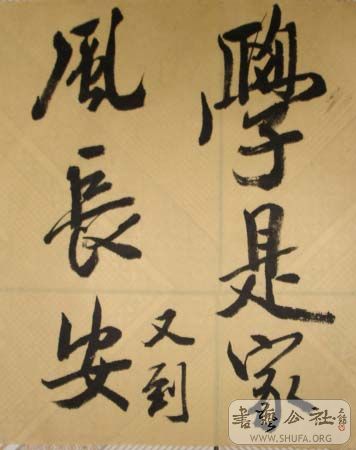 學是家
風長安
又到
書藝公社
WWW.SHUFA.ORG